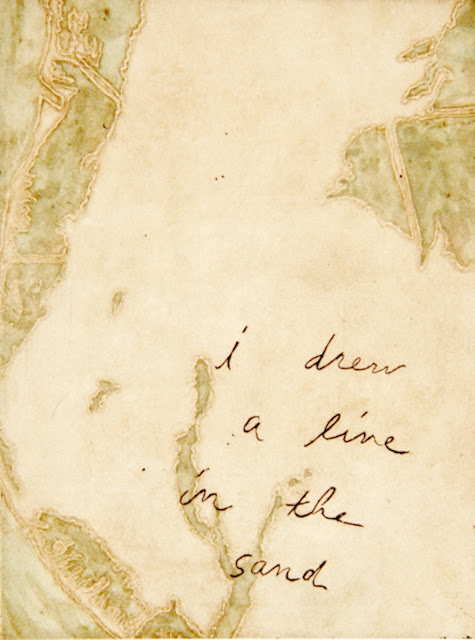 i drew
a line
in the
sand